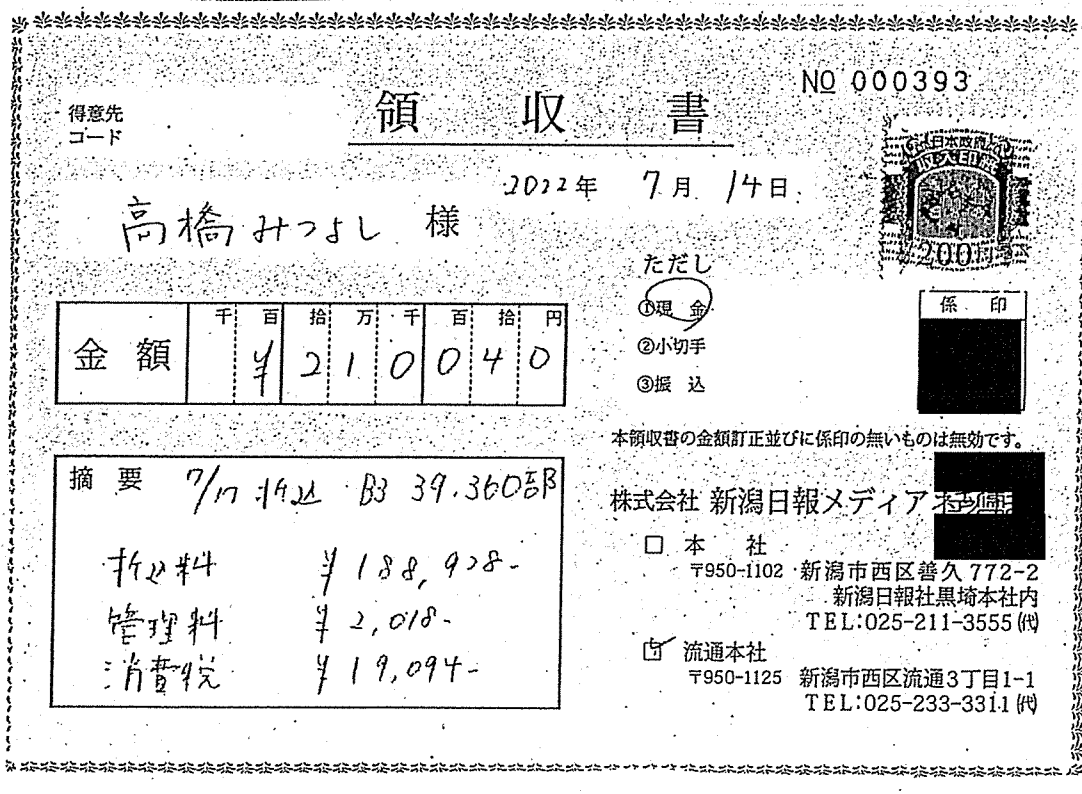 No 000393
得意先
コード
領収書
2022年 7月 14日
高橋みつよし 様
ただし
①現金
②小切手
③振込
係印
金額
千百拾万千百拾円
¥210040
本領収書の金額訂正並びに係印の無いものは無効です。
摘要 7/17 折込 B3 39.360部
折込料 ¥188,928-
管理料 ¥2,018-
消費税 ¥19,094-
株式会社 新潟日報メディアネット
□ 本社
〒950-1102 新潟市西区善久772-2
新潟日報社黒埼本社内
TEL:025-211-3555㈹
☑ 流通本社
〒950-1125 新潟市西区流通3丁目1-1
TEL:025-233-3311㈹
日本政府
収入印紙
200円